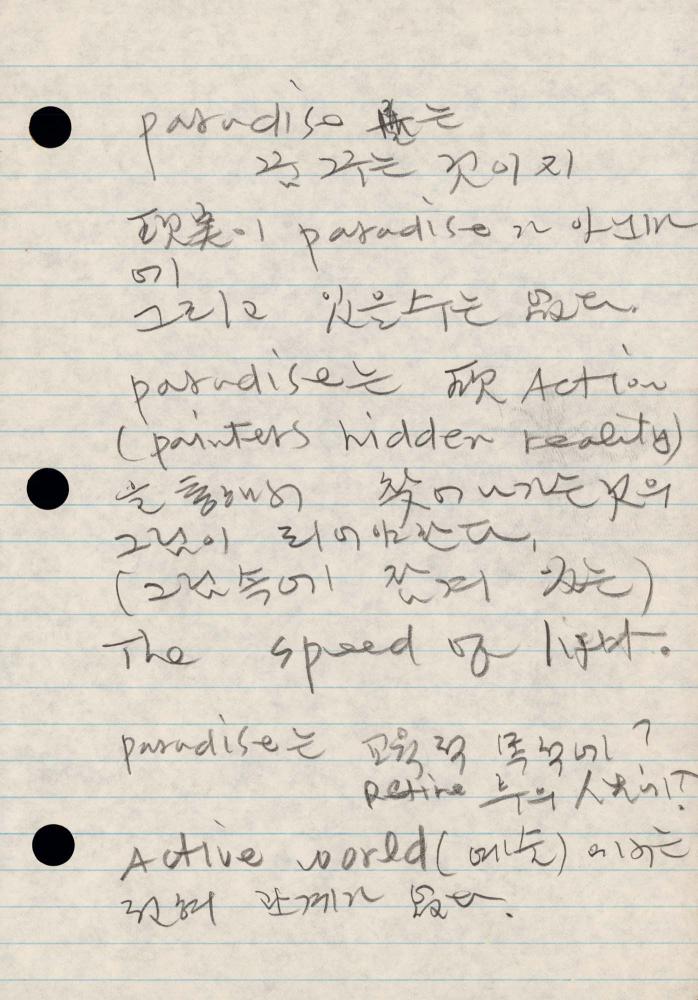 paradise 는
꿈 꾸는 것이지
現美이 paradise가 아닌데
에
그리고 있을수는 없다.
paradise는 現 Action
(painters hidden reality)
을 통해서 찾어나가는것의
그림이 되어야한다.
(그림속에 잠겨 있는)
The speed of light.
paradise는 교육적 목적에?
Retire 후의 人生에?
Active world(예술) 에서는
전혀 관계가 없다.